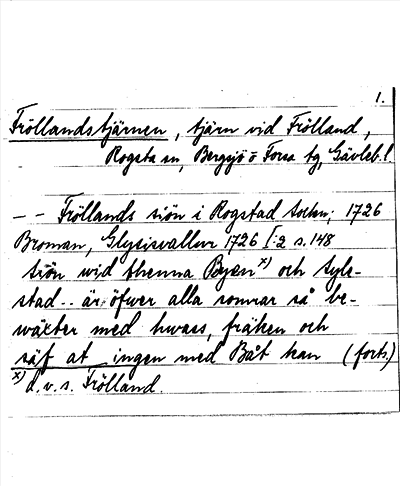 1.
Fröllandstjärnen, tjärn vid Frölland,
Rogsta sn, Bergsjö o Forsa tg, Gävleb. l.
-- Fröllands siön i Rogstad sochn; 1726
Broman, Glysisvallur 1726 I:2 s. 148
siön wid thenna Byen x) och
stad .. är öfwer alla somrar så be-
wäxter med hwass, fräken och
säf at ingen med Båt kan (forts.)
x) d.v.s. Frölland.